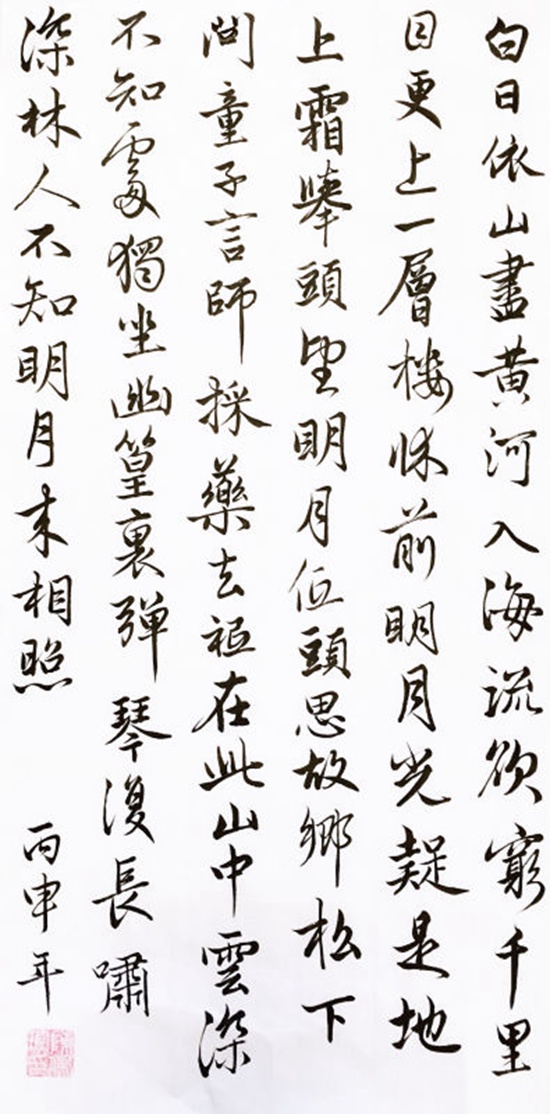 白日依山盡黃河入海流欲窮千里
目更上一層樓牀前明月光疑是地
上霜舉頭望明月低頭思故鄉松下
問童子言師採藥去祗在此山中雲深
不知處獨坐幽篁裏彈琴復長嘯
深林人不知明月來相照
丙申年